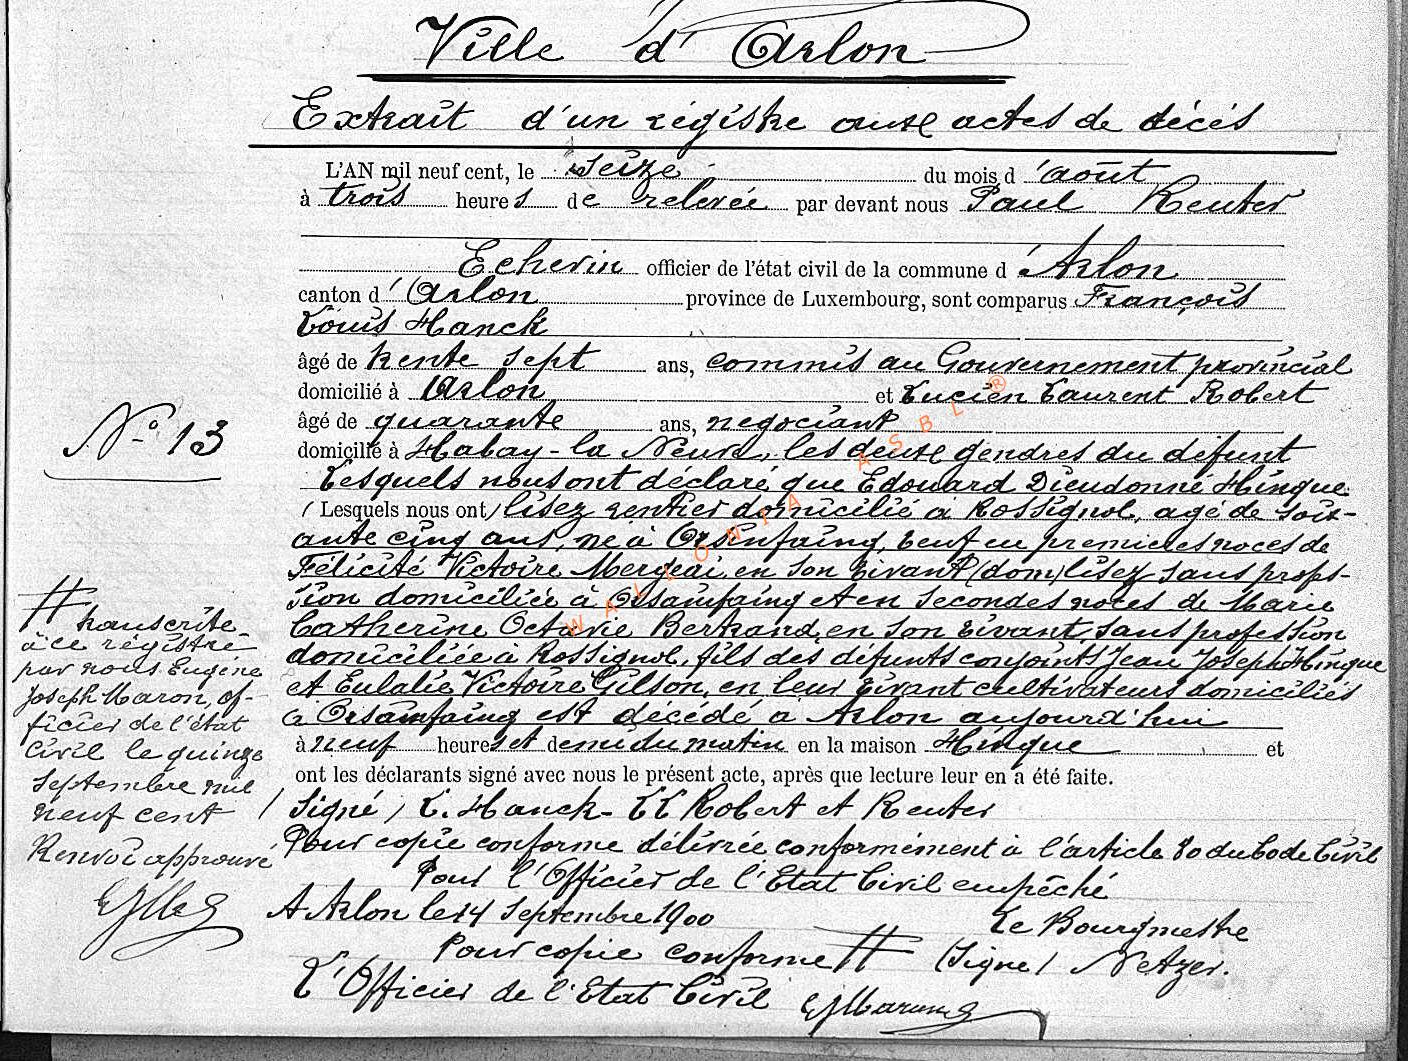 Ville d'Arlon
Extrait d'un régistre aux actes de décès
L'AN mil neuf cent, le seize du mois d'août
à trois heures de relevée par devant nous Paul Reuter
Echevin officier de l'état civil de la commune d'Arlon
canton d'Arlon province de Luxembourg, sont comparus François
Louis Hanck
âgé de trente sept ans, commis au Gouvernement provincial
domicilié à Arlon et Lucien Laurent Robert
âgé de quarante ans, negociant
domicilié à Habay-la Neuve, les deux gendres du défunt
Lesquels nous ont déclaré que Edouard Dieudonné Hinque
(Lesquels nous ont) lisez rentier domicilié à Rossignol, agé de soix-
ante cinq ans, né à Orsinfaing, veuf en premières noces de
Félicité Victoire Mergeai, en son vivant (dom) lisez sans profes-
sion domiciliée à Orsainfaing et en secondes noces de Marie
Catherine Octavie Bertrand, en son vivant, sans profession
domiciliée à Rossignol, fils des défunts conjoints Jean Joseph Hinque
et Eulalie Victoire Gilson, en leur vivant cultivateurs domiciliés
à Orsainfaing est décédé à Arlon aujourd'hui
à neuf heures et demi du matin en la maison Hinque et
ont les déclarants signé avec nous le présent acte, après que lecture leur en a été faite.
(Signé) L. Hanck - LL Robert et Reuter
Pour copie conforme délivrée conformément à l'article 80 du Code Civil
Pour l'Officier de l'Etat Civil empêché
A Arlon le 14 Septembre 1900 Le Bourgmestre
Pour copie conforme # (Signé) Netzer.
L'Officier de l'Etat Civil EJMaron
N° 13
# transcrite
à ce régistre
par nous Eugène
Joseph Maron, of-
ficier de l'état
Civil le quinze
Septembre mil
neuf cent
Renvoi approuvé
WALLONIA ASBL ®